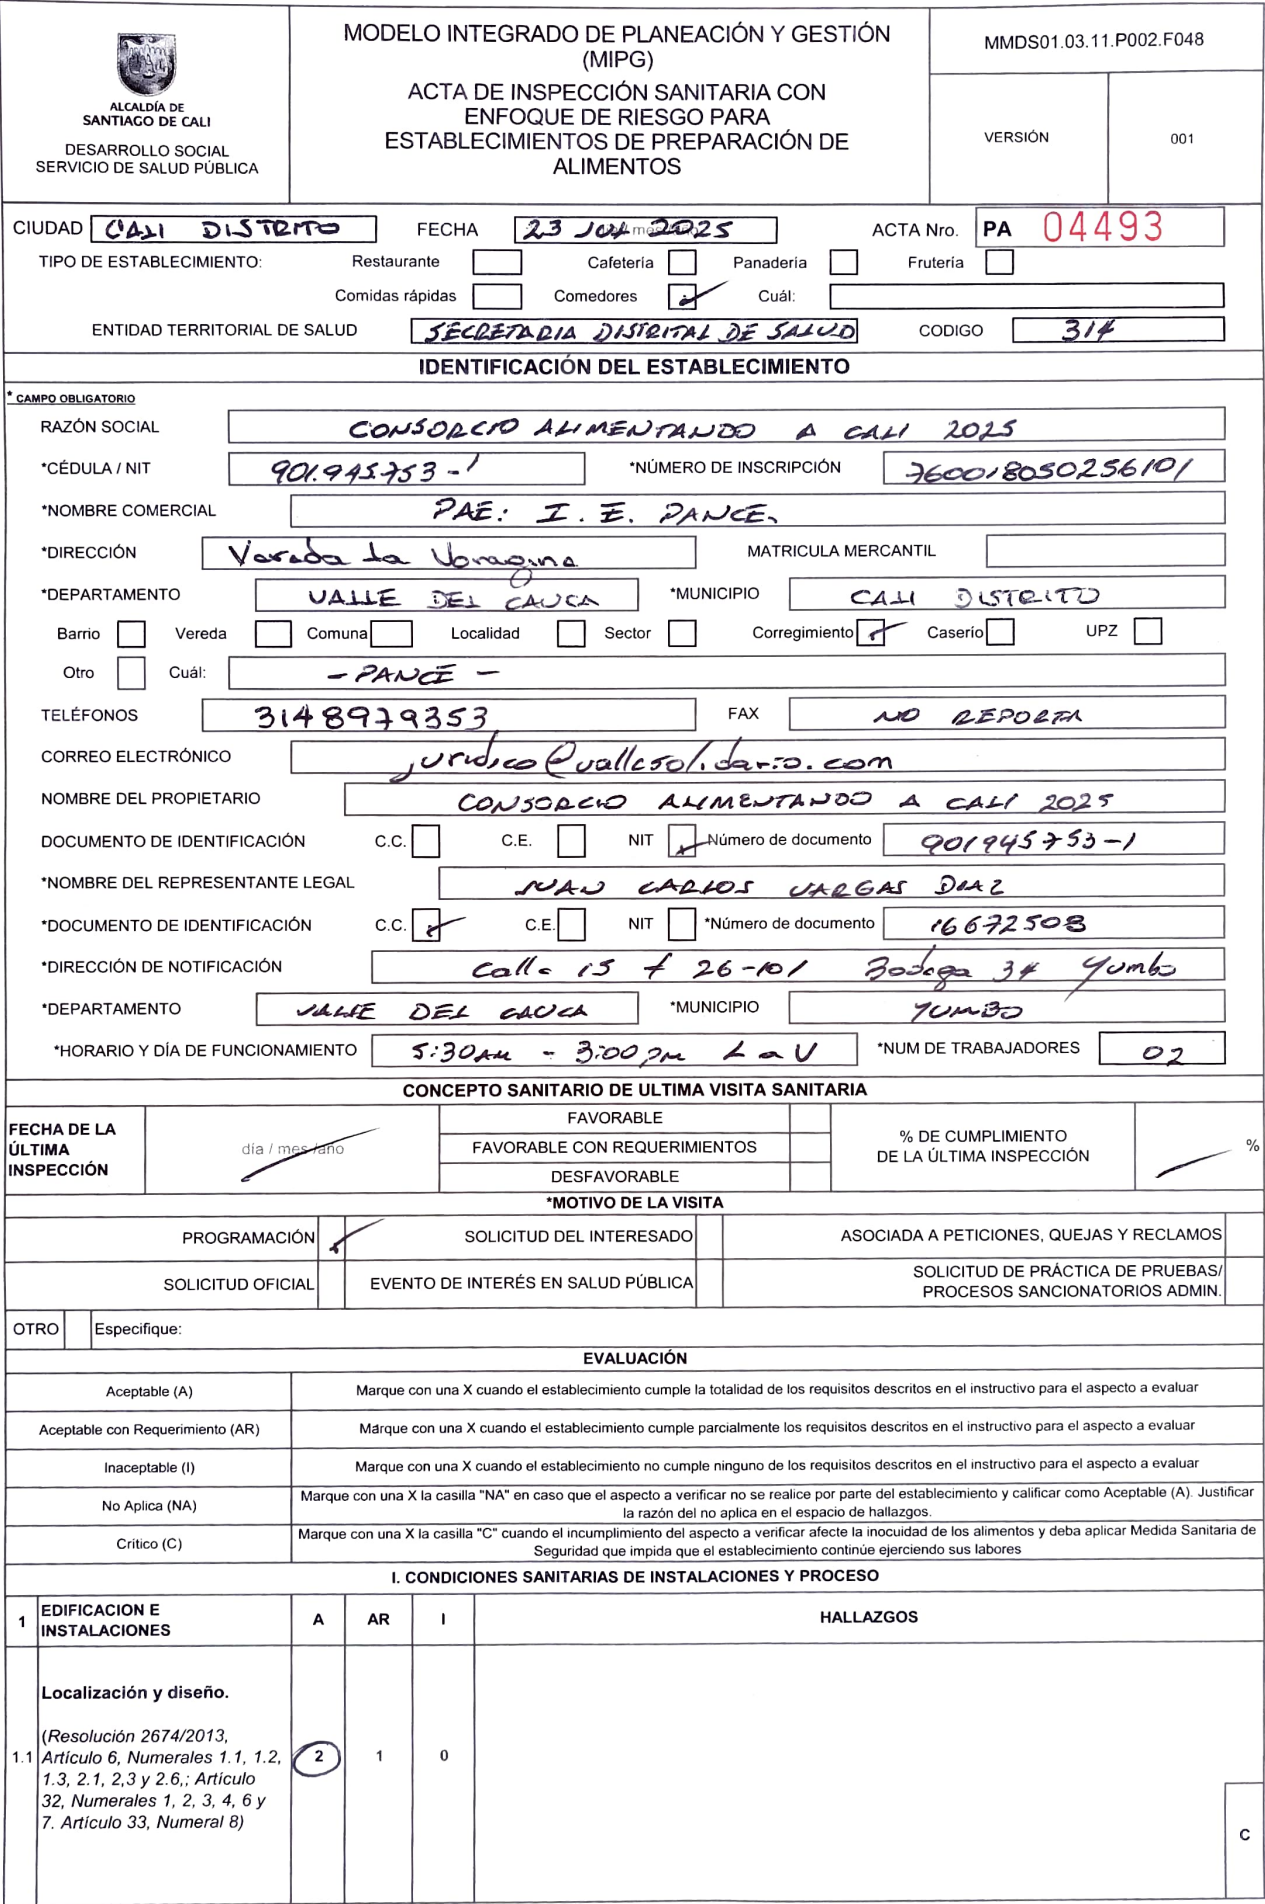 ALCALDÍA DE
SANTIAGO DE CALI
DESARROLLO SOCIAL
SERVICIO DE SALUD PÚBLICA
MODELO INTEGRADO DE PLANEACIÓN Y GESTIÓN
(MIPG)
ACTA DE INSPECCIÓN SANITARIA CON
ENFOQUE DE RIESGO PARA
ESTABLECIMIENTOS DE PREPARACIÓN DE
ALIMENTOS
MMDS01.03.11.P002.F048
VERSIÓN 001
CIUDAD CALI DISTRITO FECHA 23 JUL 2025 ACTA Nro. PA 04493
TIPO DE ESTABLECIMIENTO: Restaurante Cafetería Panadería Frutería
Comidas rápidas Comedores Cuál:
ENTIDAD TERRITORIAL DE SALUD SECRETARIA DISTRITAL DE SALUD CODIGO 314
IDENTIFICACIÓN DEL ESTABLECIMIENTO
* CAMPO OBLIGATORIO
RAZÓN SOCIAL CONSORCIO ALIMENTANDO A CALI 2025
*CÉDULA / NIT 901.945.753-1 *NÚMERO DE INSCRIPCIÓN 760018050256101
*NOMBRE COMERCIAL PAE: I. E. PANCE.
*DIRECCIÓN Vereda La Voragine MATRICULA MERCANTIL
*DEPARTAMENTO VALLE DEL CAUCA *MUNICIPIO CALI DISTRITO
Barrio Vereda Comuna Localidad Sector Corregimiento Caserío UPZ
Otro Cuál: - PANCE -
TELÉFONOS 3148979353 FAX NO REPORTA
CORREO ELECTRÓNICO juridico@vallesolidario.com
NOMBRE DEL PROPIETARIO CONSORCIO ALIMENTANDO A CALI 2025
DOCUMENTO DE IDENTIFICACIÓN C.C. C.E. NIT Número de documento 901945753-1
*NOMBRE DEL REPRESENTANTE LEGAL JUAN CARLOS VARGAS DIAZ
*DOCUMENTO DE IDENTIFICACIÓN C.C. C.E. NIT *Número de documento 16672508
*DIRECCIÓN DE NOTIFICACIÓN Calle 15 # 26-101 Bodega 34 Yumbo
*DEPARTAMENTO VALLE DEL CAUCA *MUNICIPIO YUMBO
*HORARIO Y DÍA DE FUNCIONAMIENTO 5:30 AM - 3:00 PM L a V *NUM DE TRABAJADORES 02
CONCEPTO SANITARIO DE ULTIMA VISITA SANITARIA
FECHA DE LA
ÚLTIMA
INSPECCIÓN
día / mes /año
FAVORABLE
FAVORABLE CON REQUERIMIENTOS
DESFAVORABLE
% DE CUMPLIMIENTO
DE LA ÚLTIMA INSPECCIÓN
%
*MOTIVO DE LA VISITA
PROGRAMACIÓN SOLICITUD DEL INTERESADO ASOCIADA A PETICIONES, QUEJAS Y RECLAMOS
SOLICITUD OFICIAL EVENTO DE INTERÉS EN SALUD PÚBLICA SOLICITUD DE PRÁCTICA DE PRUEBAS/
PROCESOS SANCIONATORIOS ADMIN.
OTRO Especifique:
EVALUACIÓN
Aceptable (A) Marque con una X cuando el establecimiento cumple la totalidad de los requisitos descritos en el instructivo para el aspecto a evaluar
Aceptable con Requerimiento (AR) Márque con una X cuando el establecimiento cumple parcialmente los requisitos descritos en el instructivo para el aspecto a evaluar
Inaceptable (I) Marque con una X cuando el establecimiento no cumple ninguno de los requisitos descritos en el instructivo para el aspecto a evaluar
No Aplica (NA) Marque con una X la casilla "NA" en caso que el aspecto a verificar no se realice por parte del establecimiento y calificar como Aceptable (A). Justificar
la razón del no aplica en el espacio de hallazgos.
Crítico (C) Marque con una X la casilla "C" cuando el incumplimiento del aspecto a verificar afecte la inocuidad de los alimentos y deba aplicar Medida Sanitaria de
Seguridad que impida que el establecimiento continúe ejerciendo sus labores
I. CONDICIONES SANITARIAS DE INSTALACIONES Y PROCESO
1 EDIFICACION E
INSTALACIONES
A AR I HALLAZGOS
Localización y diseño.
(Resolución 2674/2013,
1.1 Artículo 6, Numerales 1.1, 1.2, 2 1 0
1.3, 2.1, 2,3 y 2.6,; Artículo
32, Numerales 1, 2, 3, 4, 6 y
7. Artículo 33, Numeral 8)
C